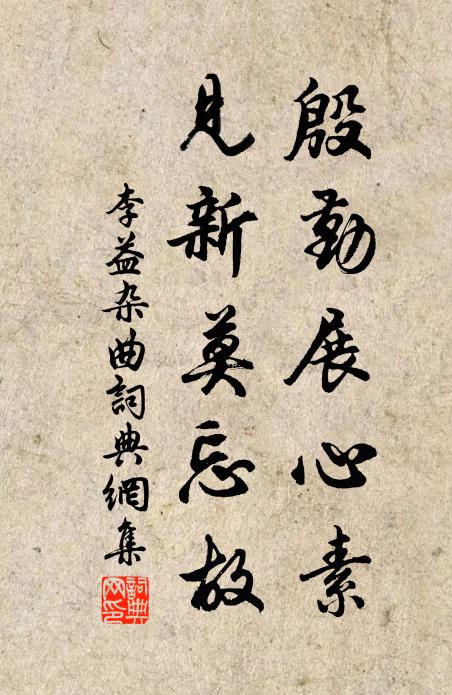 殷勤展心素
見新莫忘故
李益杂曲詞典網集
詞典
网印